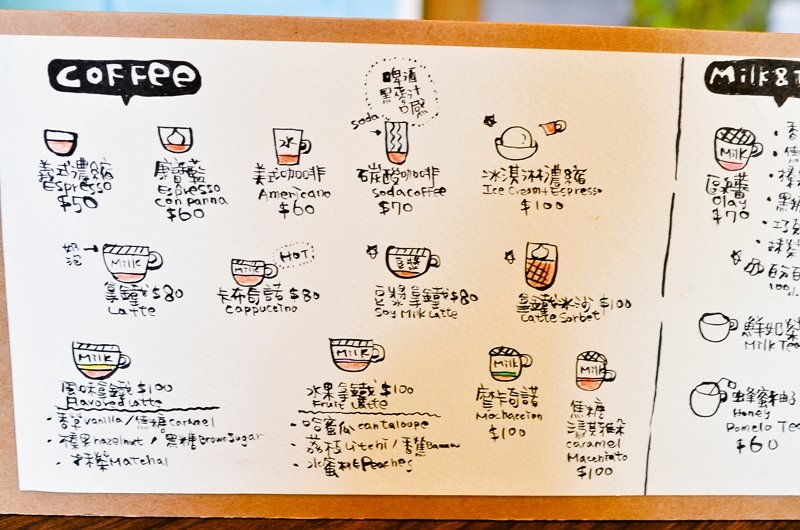 COFFEE
啤酒
黑麥汁
口感
soda
義式濃縮
Espresso
$50
康寶藍
Espresso
con panna
$60
水
美式咖啡
Americano
$60
碳酸咖啡
sodacoffee
$70
冰淇淋濃縮
Ice Cream+Espresso
$100
奶泡
Milk
拿鐵 $80
Latte
Milk
HOT
卡布奇諾 $80
cappuccino
豆漿
豆漿拿鐵 $80
Soy Milk Latte
拿鐵冰沙 $100
Latte Sorbet
Milk
風味拿鐵 $100
Flavored Latte
· 香草vanilla/焦糖caramel
· 榛果hazelnut / 黑糖BrownSugar
· 抹茶Matchal
Milk
水果拿鐵 $100
Fruit Latte
· 哈蜜瓜 cantaloupe
· 荔枝Litchi/香蕉Banana
· 水蜜桃Peaches
Milk
摩卡奇諾
Mochaccion
$100
Milk
焦糖
瑪其雅朵
caramel
Macchiato
$100
Milk & T
Milk
Olay
$70
鮮奶茶
Milk Tea
蜂蜜柚
Honey
Pomelo Tea
$60